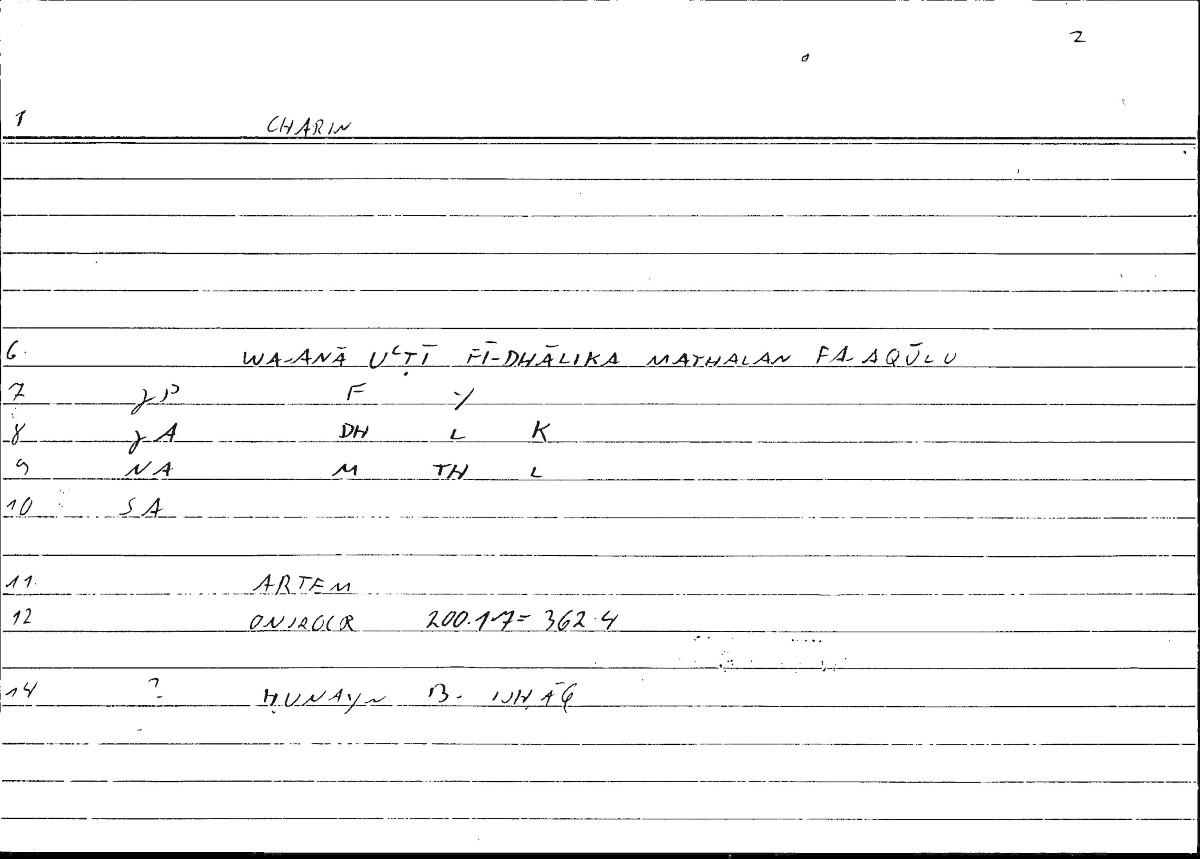 2
1 CHARIN
6. WA-ANĀ UʿṬĪ FĪ-DHĀLIKA MATHALAN FA-AQŪLU
7 γP F Y
8 γA DH L K
9 NA M TH L
10 SA
11. ARTEM
12 ONIROCR 200.1-7= 362.4
14 ? ḤUNAYN B. ISḤĀQ